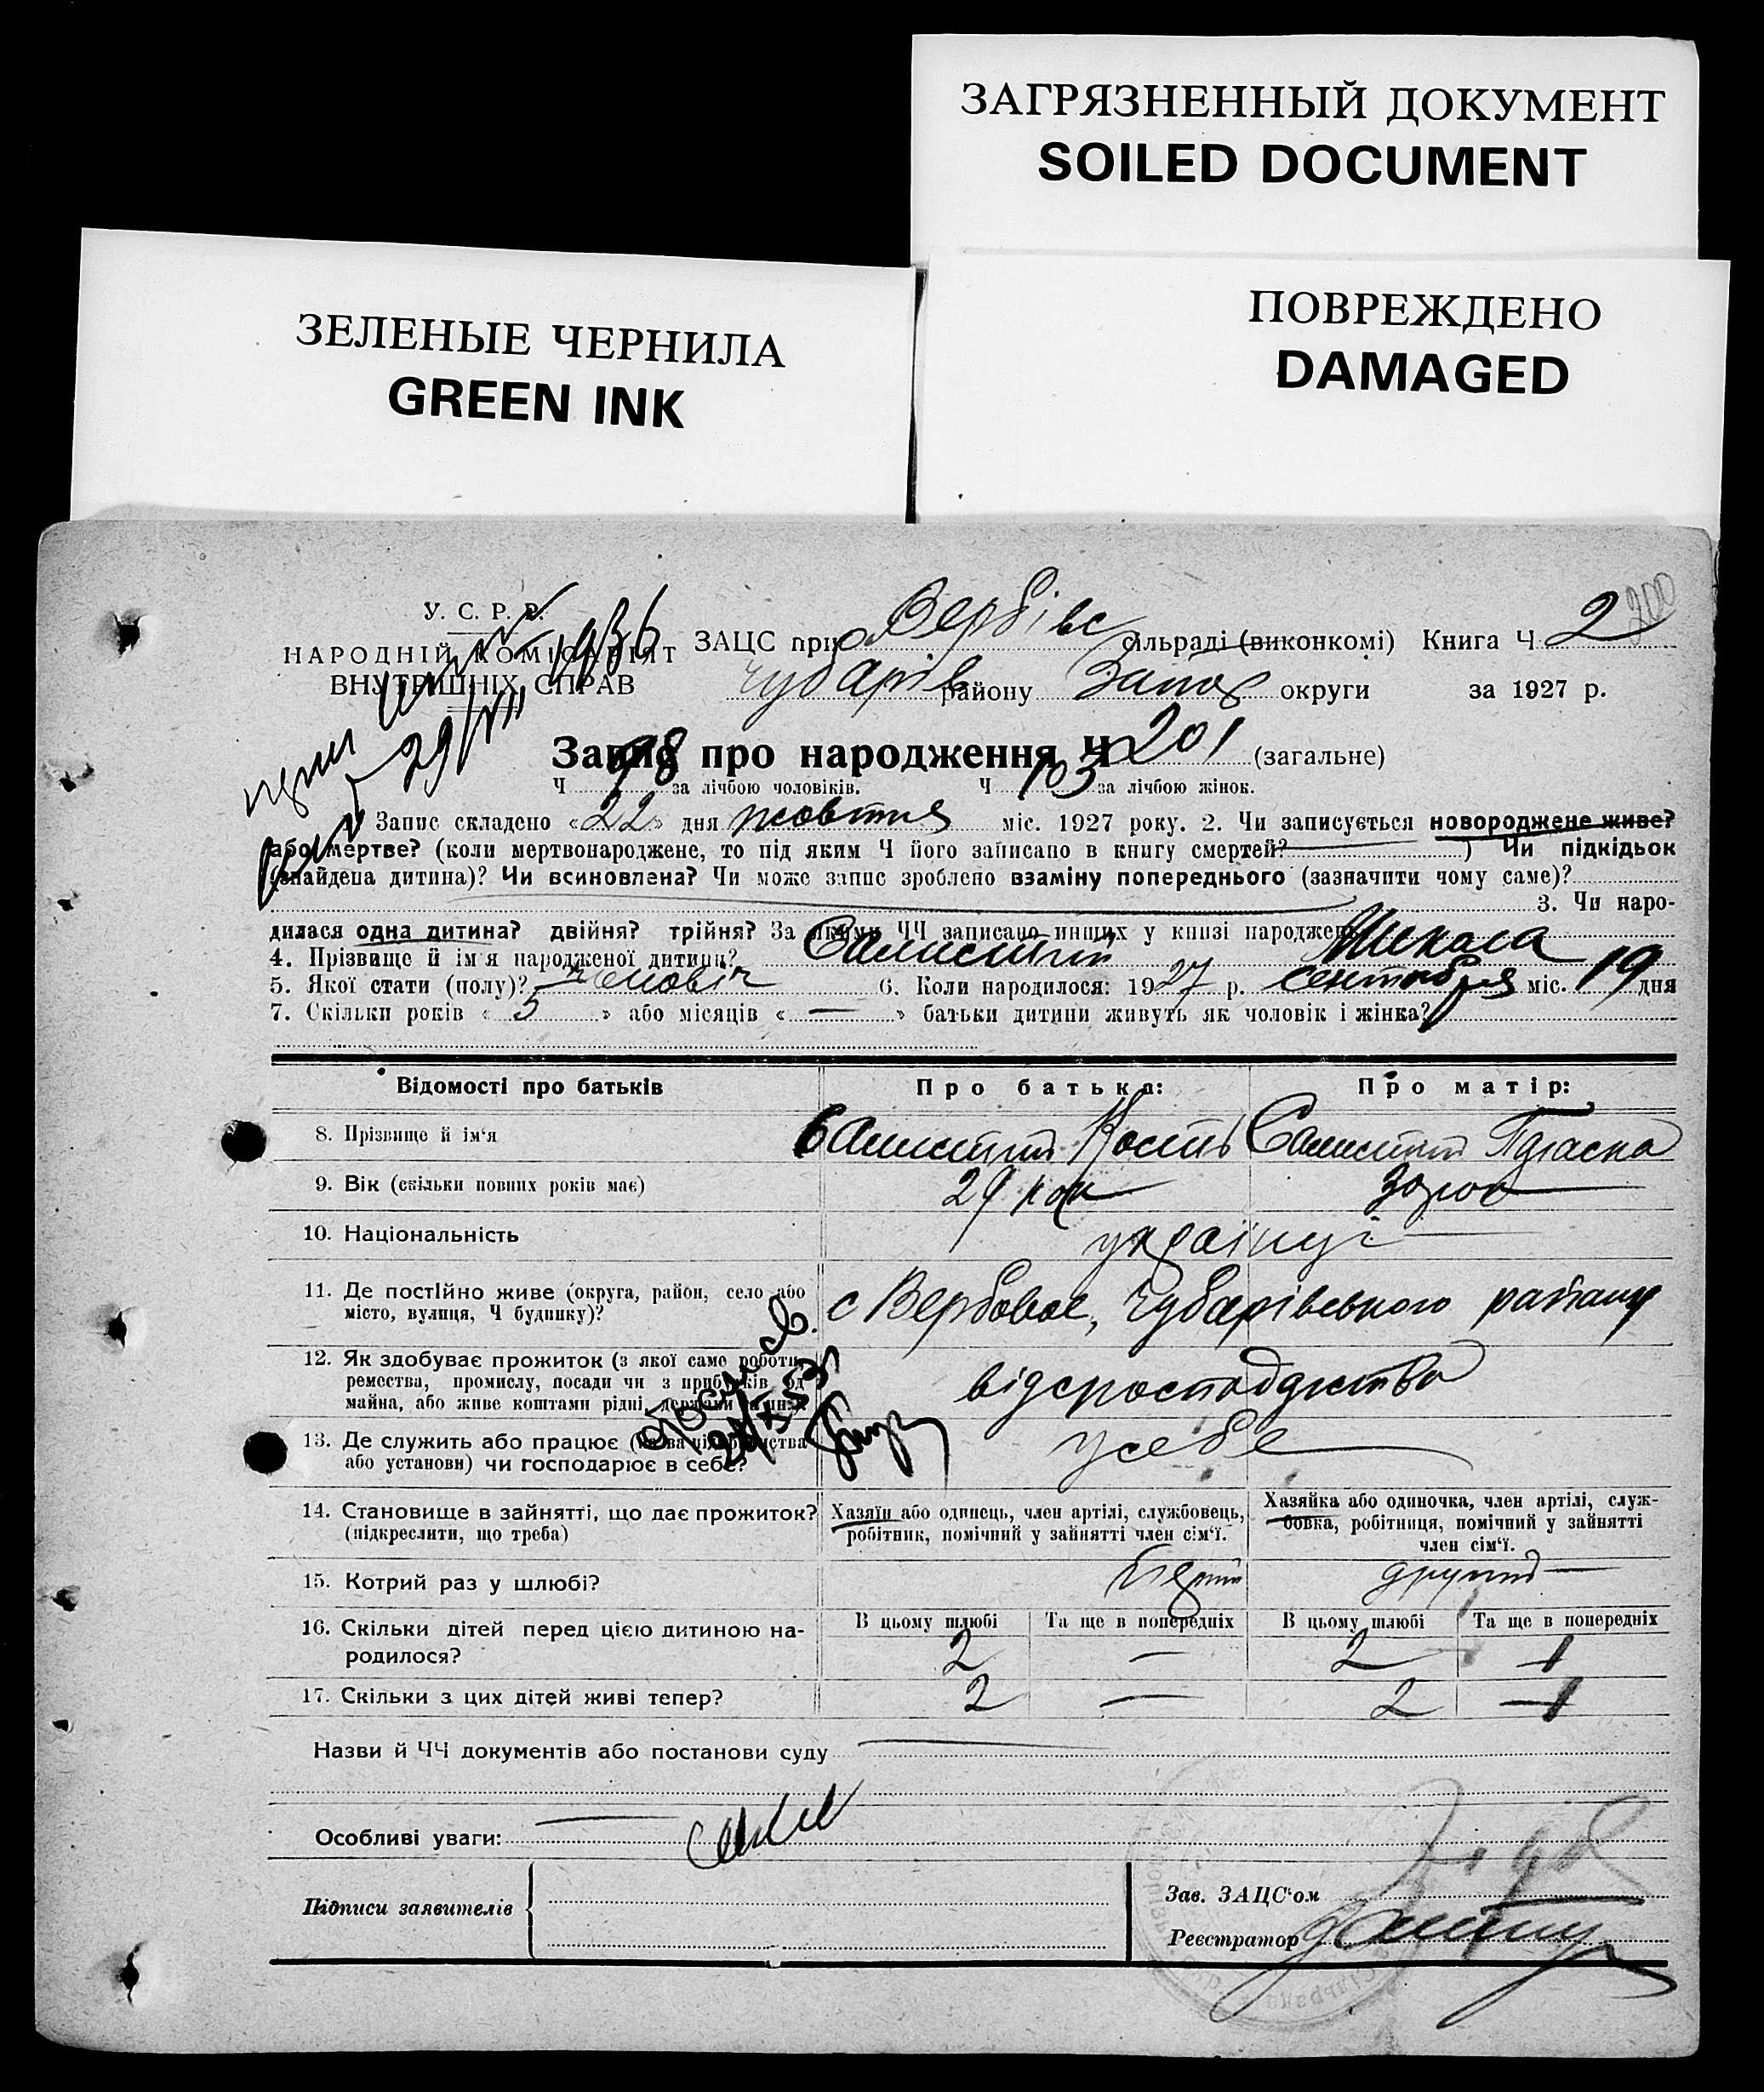 ЗАГРЯЗНЕННЫЙ ДОКУМЕНТ
SOILED DOCUMENT
ЗЕЛЕНЫЕ ЧЕРНИЛА
GREEN INK
ПОВРЕЖДЕНО
DAMAGED
У. С. Р. Р. 1936
НАРОДНІЙ КОМІСАРІЯТ
ВНУТРІШНІХ СПРАВ
ЗАЦС при Вербівс сільраді (виконкомі) Книга Ч 2 200
Чубарів району Запор округи за 1927 р.
29/VIII
Запис про народження Ч 201 (загальне)
Ч 98 за лічбою чоловіків. Ч 103 за лічбою жінок.
Запис складено «22» дня жовтня міс. 1927 року. 2. Чи записується новороджене живе?
або мертве? (коли мертвонароджене, то під яким Ч його записано в книгу смертей? ) Чи підкідьок
(знайдена дитина)? Чи всиновлена? Чи може запис зроблено взаміну попереднього (зазначити чому саме)?
3. Чи наро-
дилася одна дитина? двійня? трійня? За якими ЧЧ записано инших у книзі народжень
4. Прізвище й ім'я народженої дитини? Микола
5. Якої стати (полу)? чоловіч 6. Коли народилося: 1927 р. сентября міс. 19 дня
7. Скільки років «5» або місяців «—» батьки дитини живуть як чоловік і жінка?
Відомості про батьків Про батька: Про матір:
8. Прізвище й ім'я Кость
9. Вік (скільки повних років має) 29 рок 30 рок
10. Національність українці
11. Де постійно живе (округа, район, село або
місто, вулиця, Ч будинку)?
с Вербовое, Чубарівського району
12. Як здобуває прожиток (з якої само роботи,
ремества, промислу, посади чи з прибутків од
майна, або живе коштами рідні, держави
від сгосподарства
13. Де служить або працює
або установи) чи господарює в себе?
у себе
14. Становище в зайнятті, що дає прожиток?
(підкреслити, що треба)
Хазяїн або одинець, член артілі, службовець,
робітник, помічний у зайнятті член сім'ї.
Хазяйка або одиночка, член артілі, служ-
бовка, робітниця, помічний у зайнятті
член сім'ї.
15. Котрий раз у шлюбі? другий
16. Скільки дітей перед цією дитиною на-
родилося?
В цьому шлюбі Та ще в попередніх В цьому шлюбі Та ще в попередніх
2 — 2 1
17. Скільки з цих дітей живі тепер? 2 — 2 1
Назви й ЧЧ документів або постанови суду
Особливі уваги:
Підписи заявителів
Зав. ЗАЦС'ом
Реєстратор